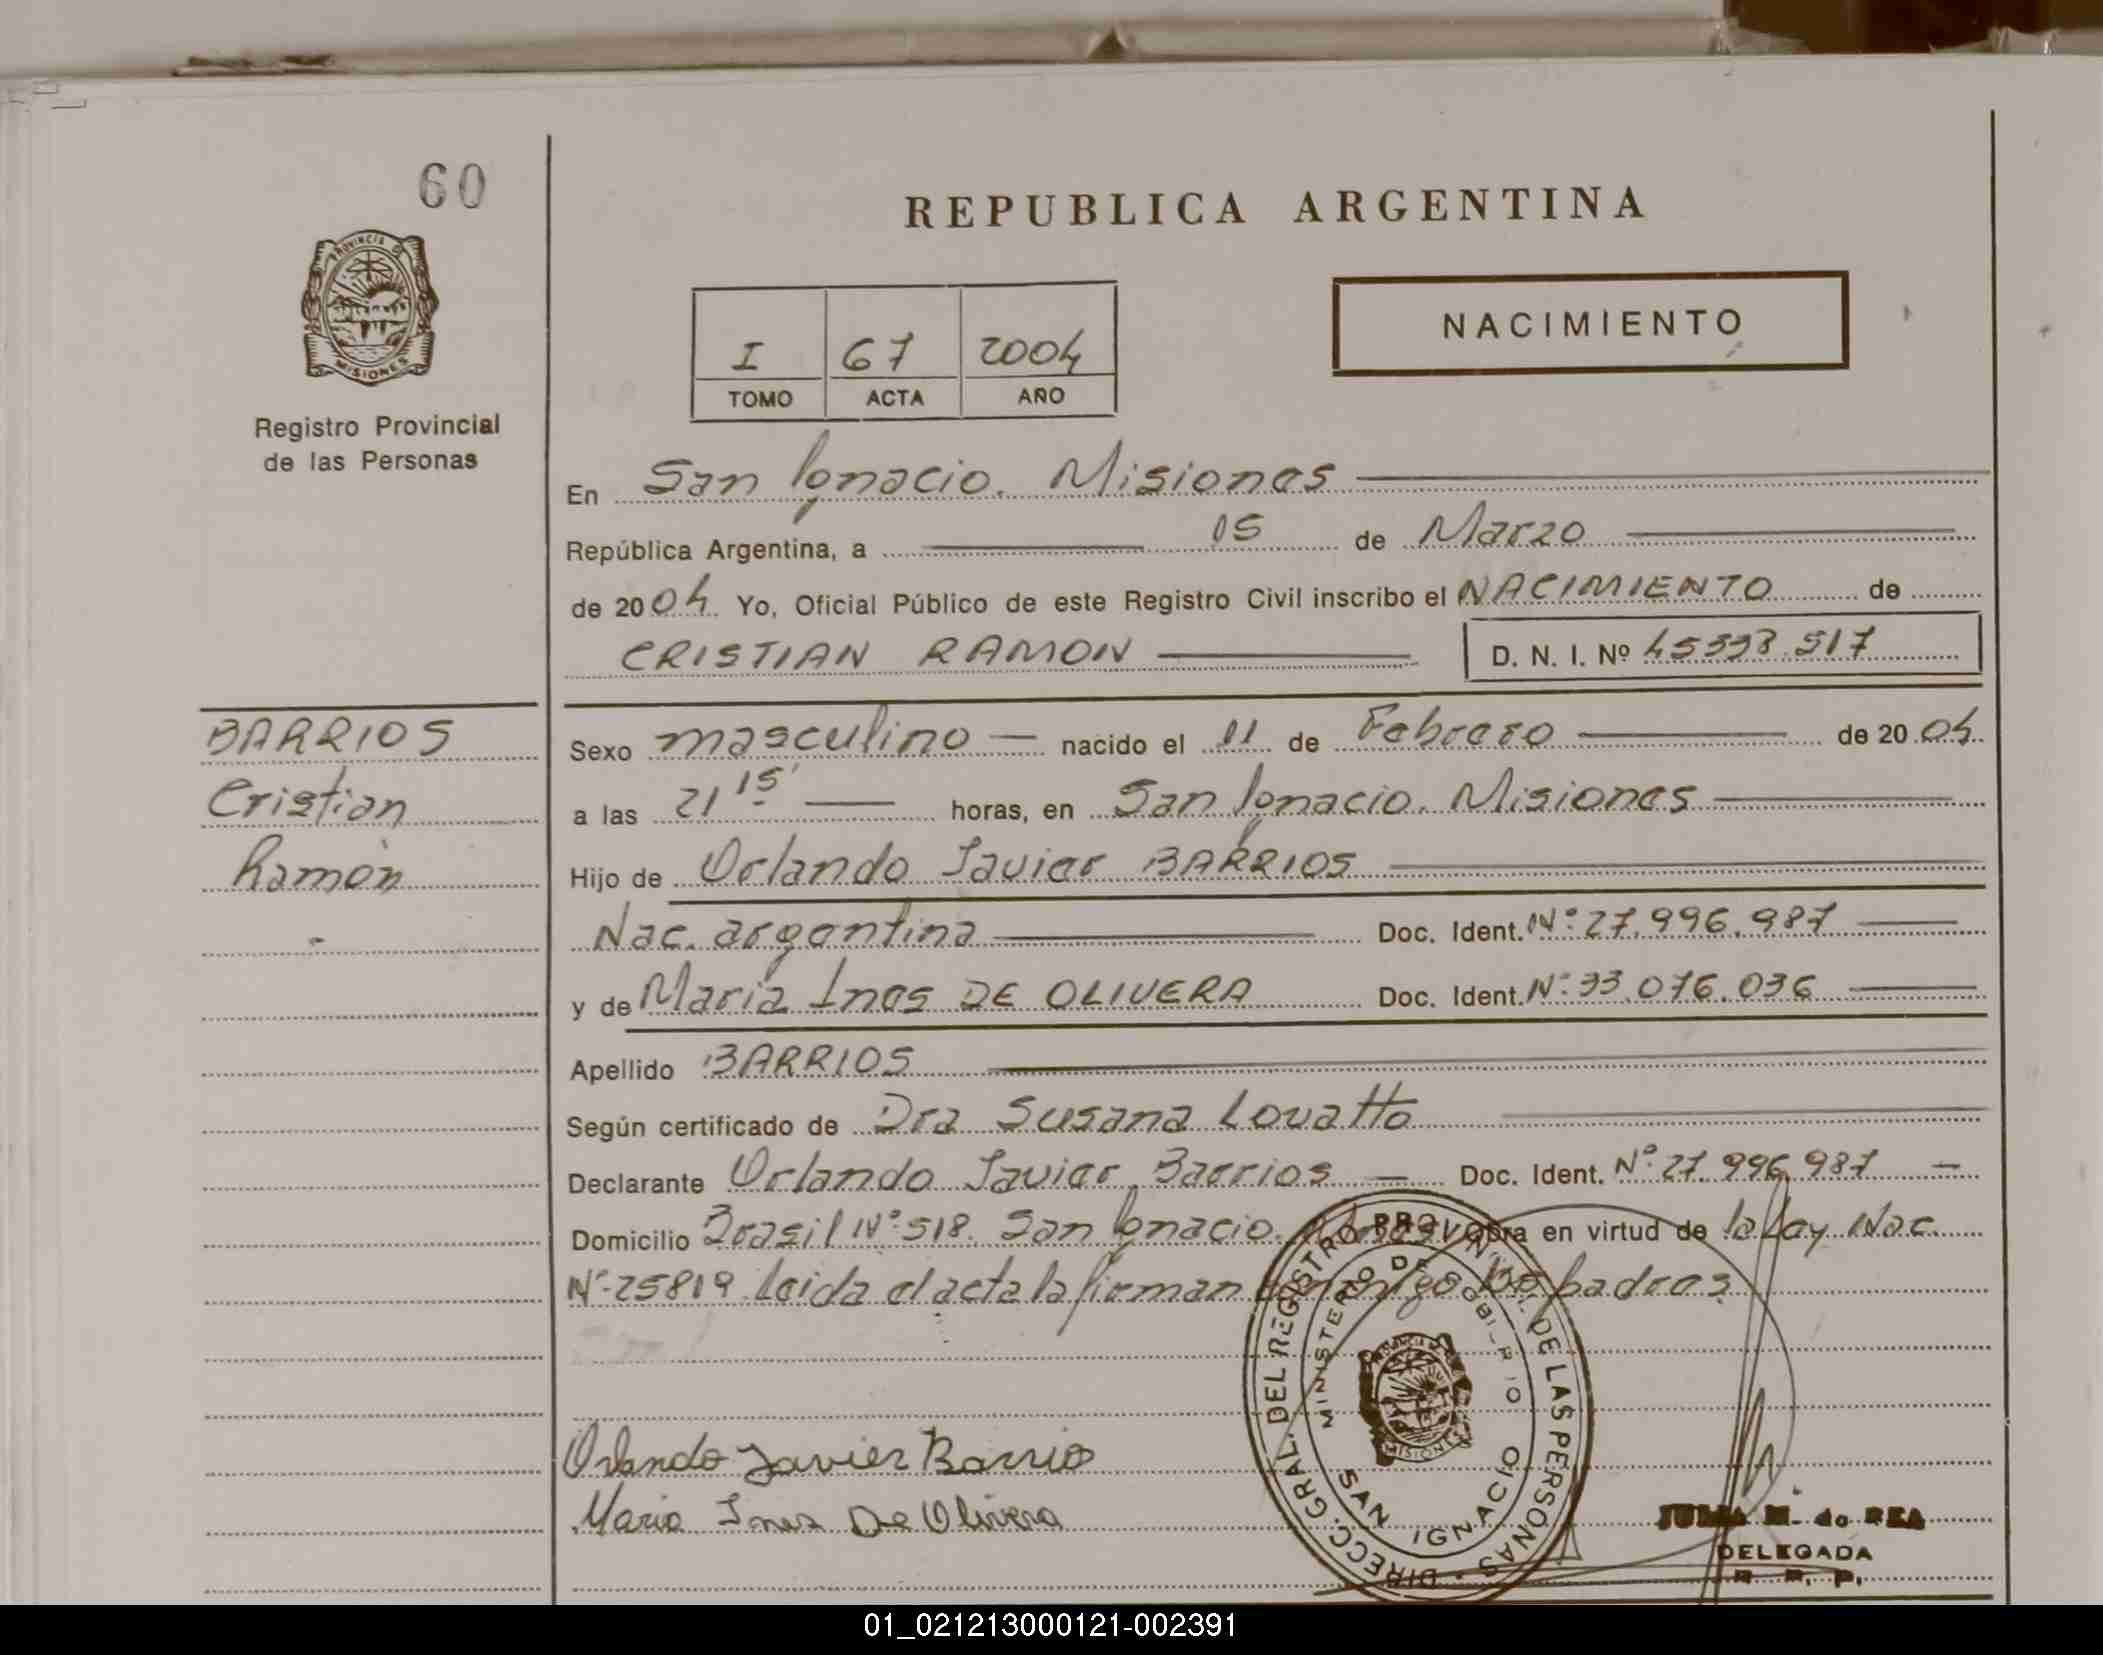 60
REPUBLICA ARGENTINA
PROVINCIA DE
MISIONES
NACIMIENTO
I 67 2004
TOMO ACTA AÑO
Registro Provincial
de las Personas
En San Ignacio. Misiones
República Argentina, a 15 de Marzo
de 2004 Yo, Oficial Público de este Registro Civil inscribo el NACIMIENTO de
CRISTIAN RAMON D. N. I. Nº 45338.517
BARRIOS
Cristian
Ramón
Sexo masculino nacido el 11 de Febrero de 2004
a las 21 15' horas, en San Ignacio. Misiones
Hijo de Orlando Javier BARRIOS
Nac. argentina Doc. Ident. Nº: 27.996.987
y de Maria Ines DE OLIVERA Doc. Ident. Nº: 33.076.036
Apellido BARRIOS
Según certificado de Dra Susana Lovatto
Declarante Orlando Javier Barrios Doc. Ident. Nº: 27.996.987
Domicilio Brasil Nº: 518. San Ignacio. obra en virtud de la Ley Nac.
Nº: 25819 Leida el acta la firman conmigo los padres
Orlando Javier Barrio
Maria Ines De Olivera
DIRECC. GRAL. DEL REGISTRO PROVINCIAL DE LAS PERSONAS
MINISTERIO DE GOBIERNO
SAN IGNACIO
MISIONES
M. de REA
DELEGADA
R. P. P.
01_021213000121-002391